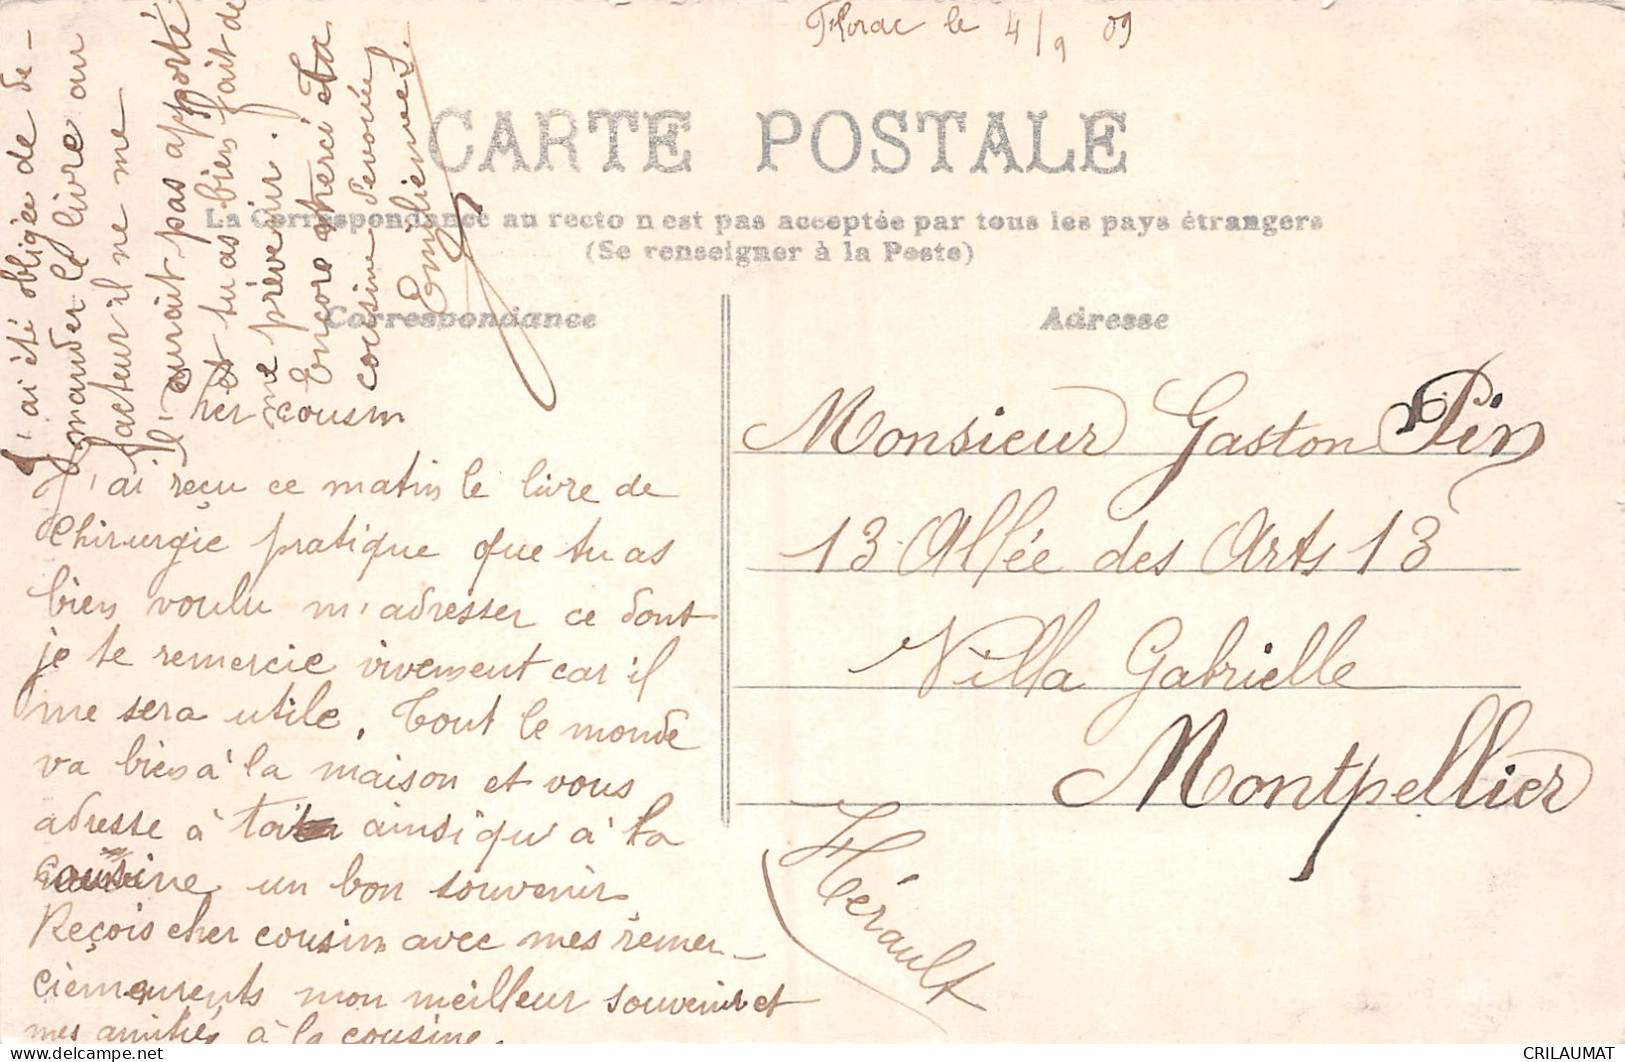 Florac le 4/9 09
CARTE POSTALE
La Correspondance au recto n'est pas acceptée par tous les pays étrangers
(Se renseigner à la Poste)
Correspondance
Adresse
Cher cousin
J'ai reçu ce matin le livre de
chirurgie pratique que tu as
bien voulu m'adresser ce dont
je te remercie vivement car il
me sera utile. Tout le monde
va bien à la maison et vous
adresse à toi ainsi qu'à ta
cousine un bon souvenir
Reçois cher cousin avec mes remer-
ciements mon meilleur souvenir et
mes amitiés à la cousine.
J'ai été obligée de de-
mander le livre au
facteur il ne me
l'aurait pas apporté
et tu as bien fait de
me prévenir.
Encore merci ta
cousine dévouée
Emilienne
Monsieur Gaston Pin
13 Allée des Arts 13
Villa Gabrielle
Montpellier
Hérault
CRILAUMAT